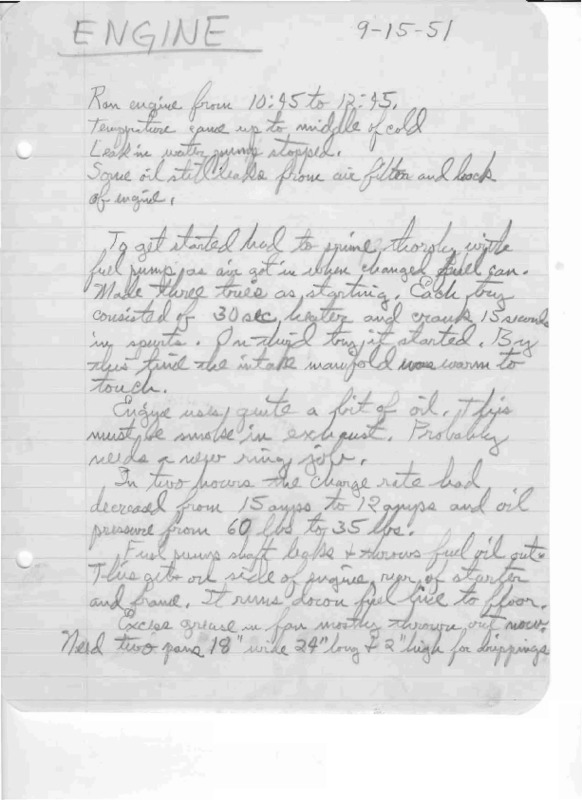 ENGINE 9-15-51
Ran engine from 10:45 to 12:45.
Temperature came up to middle of cold
Leak in water pump stopped.
Some oil still leaks from air filter and back
of engine.
To get started had to prime thoroly with
fuel pump as air got in when changed fuel can.
Made three tries as starting. Each try
consisted of 30 sec heater and crank 15 seconds
in spurts. On third try it started. By
this time the intake manifold was warm to
touch.
Engine uses quite a bit of oil. This
must be smoke in exhaust. Probably
needs a new ring job.
In two hours the charge rate had
decreased from 15 amps to 12 amps and oil
pressure from 60 lbs to 35 lbs.
Fuel pump shaft leaks + throws fuel oil out.
This gets on side of engine, rear of starter
and frame. It runs down fuel line to floor.
Excess grease in fan mostly thrown out now.
Need two pans 18" wide 24" long + 2" high for drippings